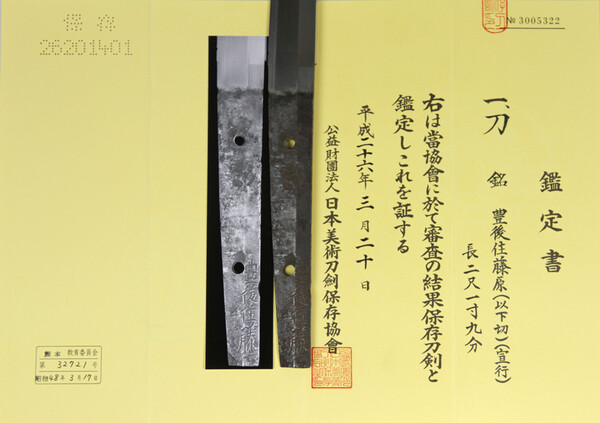 № 3005322
鑑定書
一、刀 銘 豊後住藤原(以下切)(宣行)
長二尺一寸九分
右は當協會に於て審査の結果保存刀剣と
鑑定しこれを証する
平成二十六年三月二十日
公益財團法人 日本美術刀劍保存協會
保存
26201401
豊後住藤
豊後住藤
熊本 教育委員会
第 32721 号
昭和48年3月19日